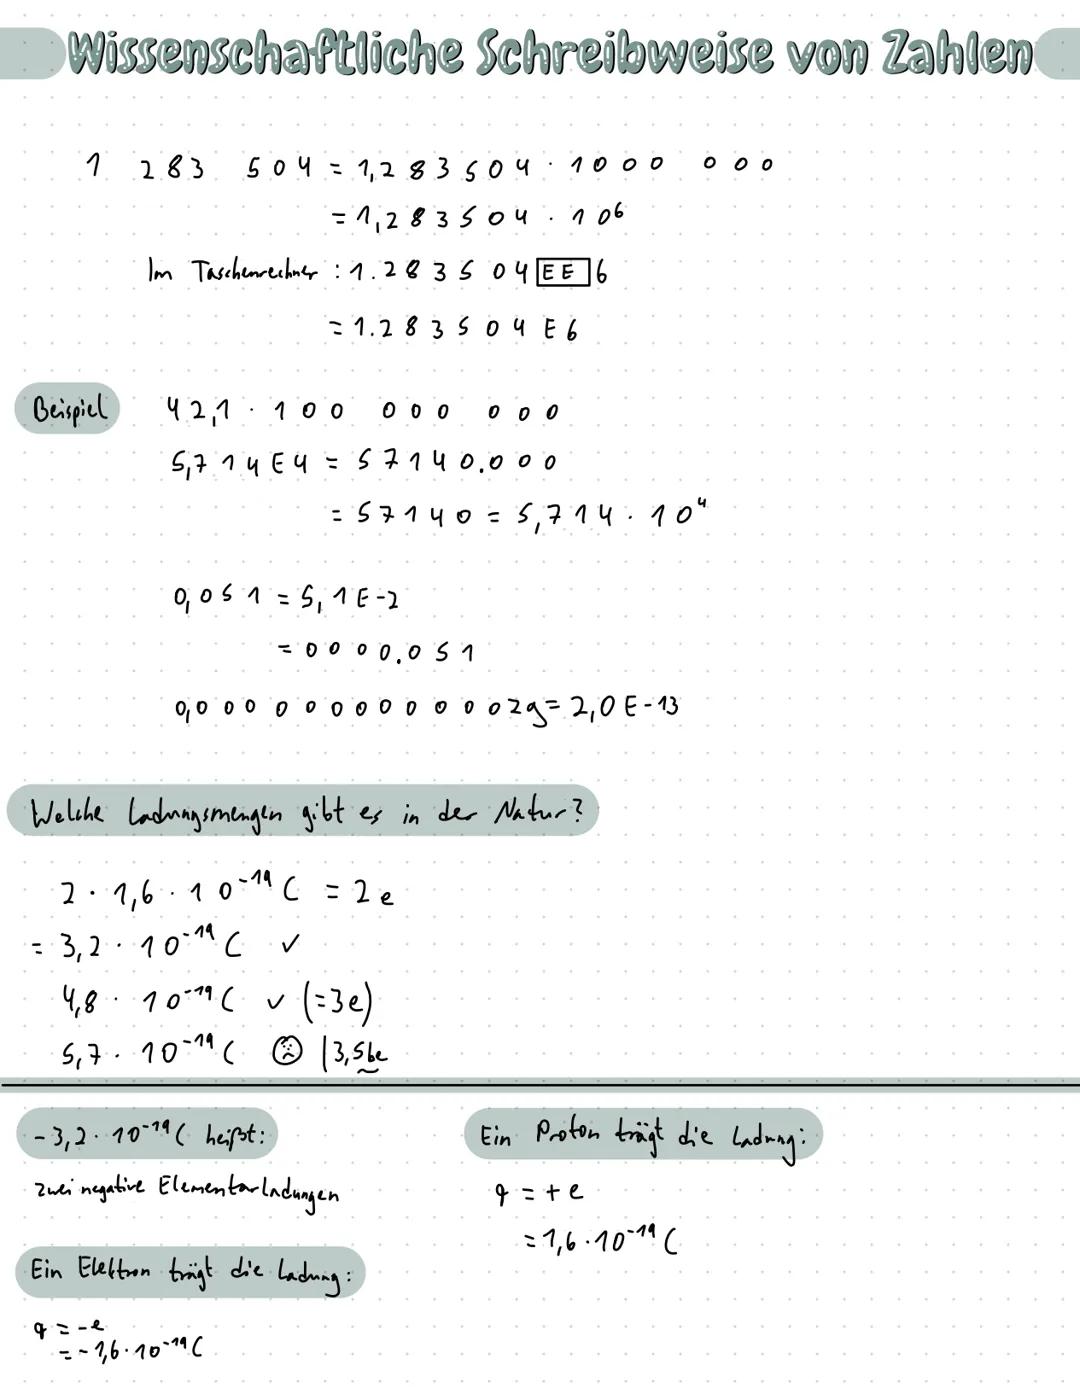 Wissenschaftliche Schreibweise von Zahlen
1 283 504 = 1,283504 · 1000 000
= 1,283504 · 10⁶
Im Taschenrechner : 1.283504 EE 6
= 1.283504 E6
Beispiel 42,1 · 100 000 000
5,714E4 = 57140.000
= 57140 = 5,714 · 10⁴
0,051 = 5,1E-2
= 0000.051
0,00000000000002g = 2,0E-13
Welche Ladungsmengen gibt es in der Natur?
2 · 1,6 · 10⁻¹⁹ C = 2e
= 3,2 · 10⁻¹⁹ C ✓
4,8 · 10⁻¹⁹ C ✓ (=3e)
5,7 · 10⁻¹⁹ C ☹ | 3,56e
-3,2 · 10⁻¹⁹ C heißt:
zwei negative Elementarladungen
Ein Elektron trägt die Ladung:
q = -e
= -1,6 · 10⁻¹⁹ C
Ein Proton trägt die Ladung:
q = +e
= 1,6 · 10⁻¹⁹ C